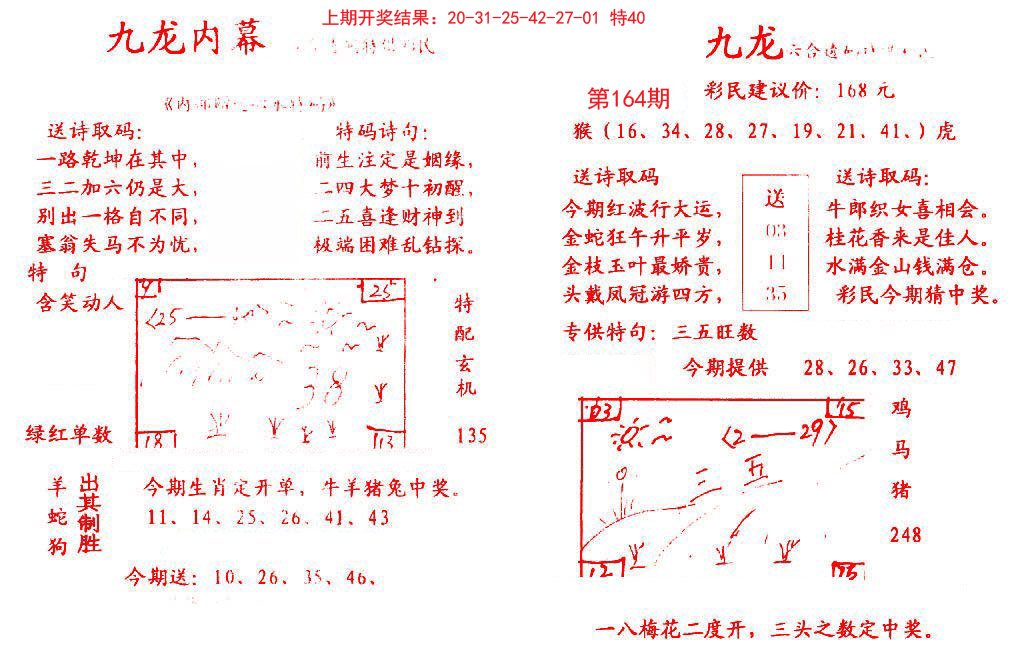 上期开奖结果：20-31-25-42-27-01 特40
九龙内幕
送诗取码：
一路乾坤在其中，
三二加六仍是大，
别出一格自不同，
塞翁失马不为忧，
特码诗句：
前生注定是姻缘，
二四大梦十初醒，
二五喜逢财神到
极端困难乱钻探。
特 句
含笑动人
绿红单数
25
〈25
38
18
113
特配玄机
135
羊蛇狗
出其制胜
今期生肖定开单，牛羊猪兔中奖。
11、14、25、26、41、43
今期送：10、26、35、46、
九龙
第164期
彩民建议价：168 元
猴（16、34、28、27、19、21、41、）虎
送诗取码
今期红波行大运，
金蛇狂午升平岁，
金枝玉叶最娇贵，
头戴凤冠游四方，
送
03
11
35
送诗取码：
牛郎织女喜相会。
桂花香来是佳人。
水满金山钱满仓。
彩民今期猜中奖。
专供特句：三五旺数
今期提供 28、26、33、47
03
15
〈2——29〉
二 五
12
鸡
马
猪
248
一八梅花二度开，三头之数定中奖。